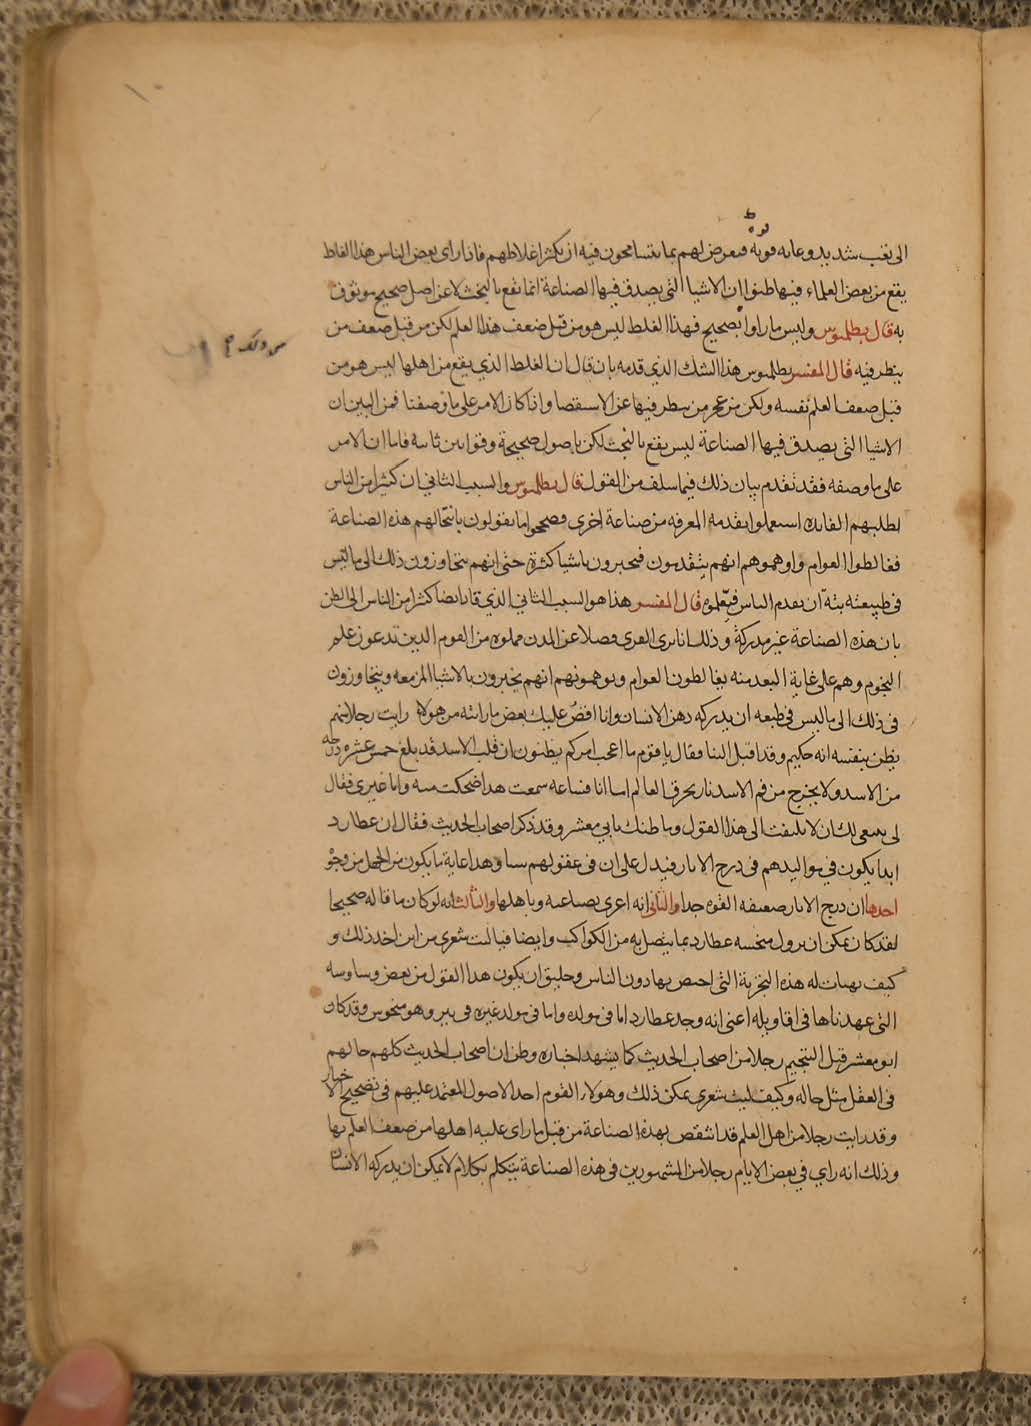 الى تعب شديد وعنايه قويه فيعرض لهم بما يتسامحون فيه ان يكثر اغلاطهم فاذا راى بعض الناس هذا الغلط
يقع من بعض العلماء فيها ظنوا ان الاشياء التى يصدق فيها الصناعة انما تقع بالبخت لا عن اصل صحيح موثوق
به قال بطلميوس وليس ما راوا بصحيح فهذا الغلط ليس هو من قبل ضعف هذا العلم لكن من قبل ضعف من
ينظر فيه قال المفسر بطلميوس هذا الشك الذي قدمه بان قال ان الغلط الذي يقع من اهلها ليس هو من
قبل ضعف العلم نفسه ولكن من عجز من ينظر فيها عن الاستقصا واذا كان الامر على ما وصفنا فمن البين ان
الاشيا التى يصدق فيها الصناعة ليس يقع بالبخت لكن باصول صحيحة وقوانين ثابته فاما ان الامر
على ما وصفه فقد تقدم بيان ذلك فيما سلف من القول قال بطلميوس والسبب الثاني ان كثيرا من الناس
لطلبهم الفايده استعملوا تقدمة المعرفه من صناعة اخرى وصححوا ما يقولون بانتحالهم هذه الصناعة
فغالطوا العوام واوهموهم انهم يتقدمون فيخبرون باشيا كثيرة حتى انهم يتجاوزون ذلك الى ما ليس
فى طبيعته بتة ان يقدم الناس فيعلموه قال المفسر هذا هو السبب الثاني الذي قاد ايضا كثيرا من الناس الى الظن
بان هذه الصناعة غير مدركة وذلك انا نرى القرى فضلا عن المدن مملوه من القوم الذين تدعون علم
النجوم وهم على غاية البعد منه يغالطون العوام ويوهمونهم انهم يخبرون بالاشيا المزمعه ويتجاوزون
فى ذلك الى ما ليس فى طبعه ان يدركه ذهن الانسان وانا اقص عليك بعض ما رايته من هولاء رايت رجلا منهم
يظن بنفسه انه حكيم وقد اقبل الينا وقال يا قوم ما اعجب امركم يظنون ان قلب الاسد قد بلغ خمس عشره درجه
من الاسد ولا يخرج من فم الاسد نار يحرق العالم اما انا فساعه سمعت هذا ضحكت منه واما غيرى فقال
لى ينبغى لك ان لا تلتفت الى هذا القول وما ظنك بابي معشر وقد ذكر اصحاب الحديث فقال ان عطارد
ابدا يكون في مواليدهم فى درج الابار فيدل على ان فى عقولهم وهذا غاية ما يكون من الجهل من وجوه
احدها ان درج الابار ضعيفه القوه جدا والثانى انه اغرى بصناعته وباهلها والثالث انه لو كان ما قاله صحيحا
لقد كان يمكن ان يزول منحسه عطارد بما يتصل به من الكواكب وايضا فيا ليت شعرى من اين اخذ ذلك و
كيف تهيات له هذه التجربة التى اختص بها دون الناس وخليق ان يكون هذا القول من بعض وساوسه
التى عهدناها فى اقاويله اعنى انه وجد عطارد اما فى مولده واما فى مولد غيره فى بير وهو منحوس وقد كان
ابو معشر قبل التنجيم رجلا من اصحاب الحديث كما يشهد اخباره وظن ان اصحاب الحديث كلهم حالهم
فى العقل مثل حاله وكيف ليت شعرى يمكن ذلك وهولاء القوم احد الاصول المعتمد عليهم فى تصحيح الاخبار
وقد رايت رجلا من اهل العلم قد انتقص بهذه الصناعة من قبل ما راى عليه اهلها من ضعف العلم بها
وذلك انه راي في بعض الايام رجلا من المشهورين فى هذه الصناعة يتكلم بكلام لا يمكن ان يدركه الانسان